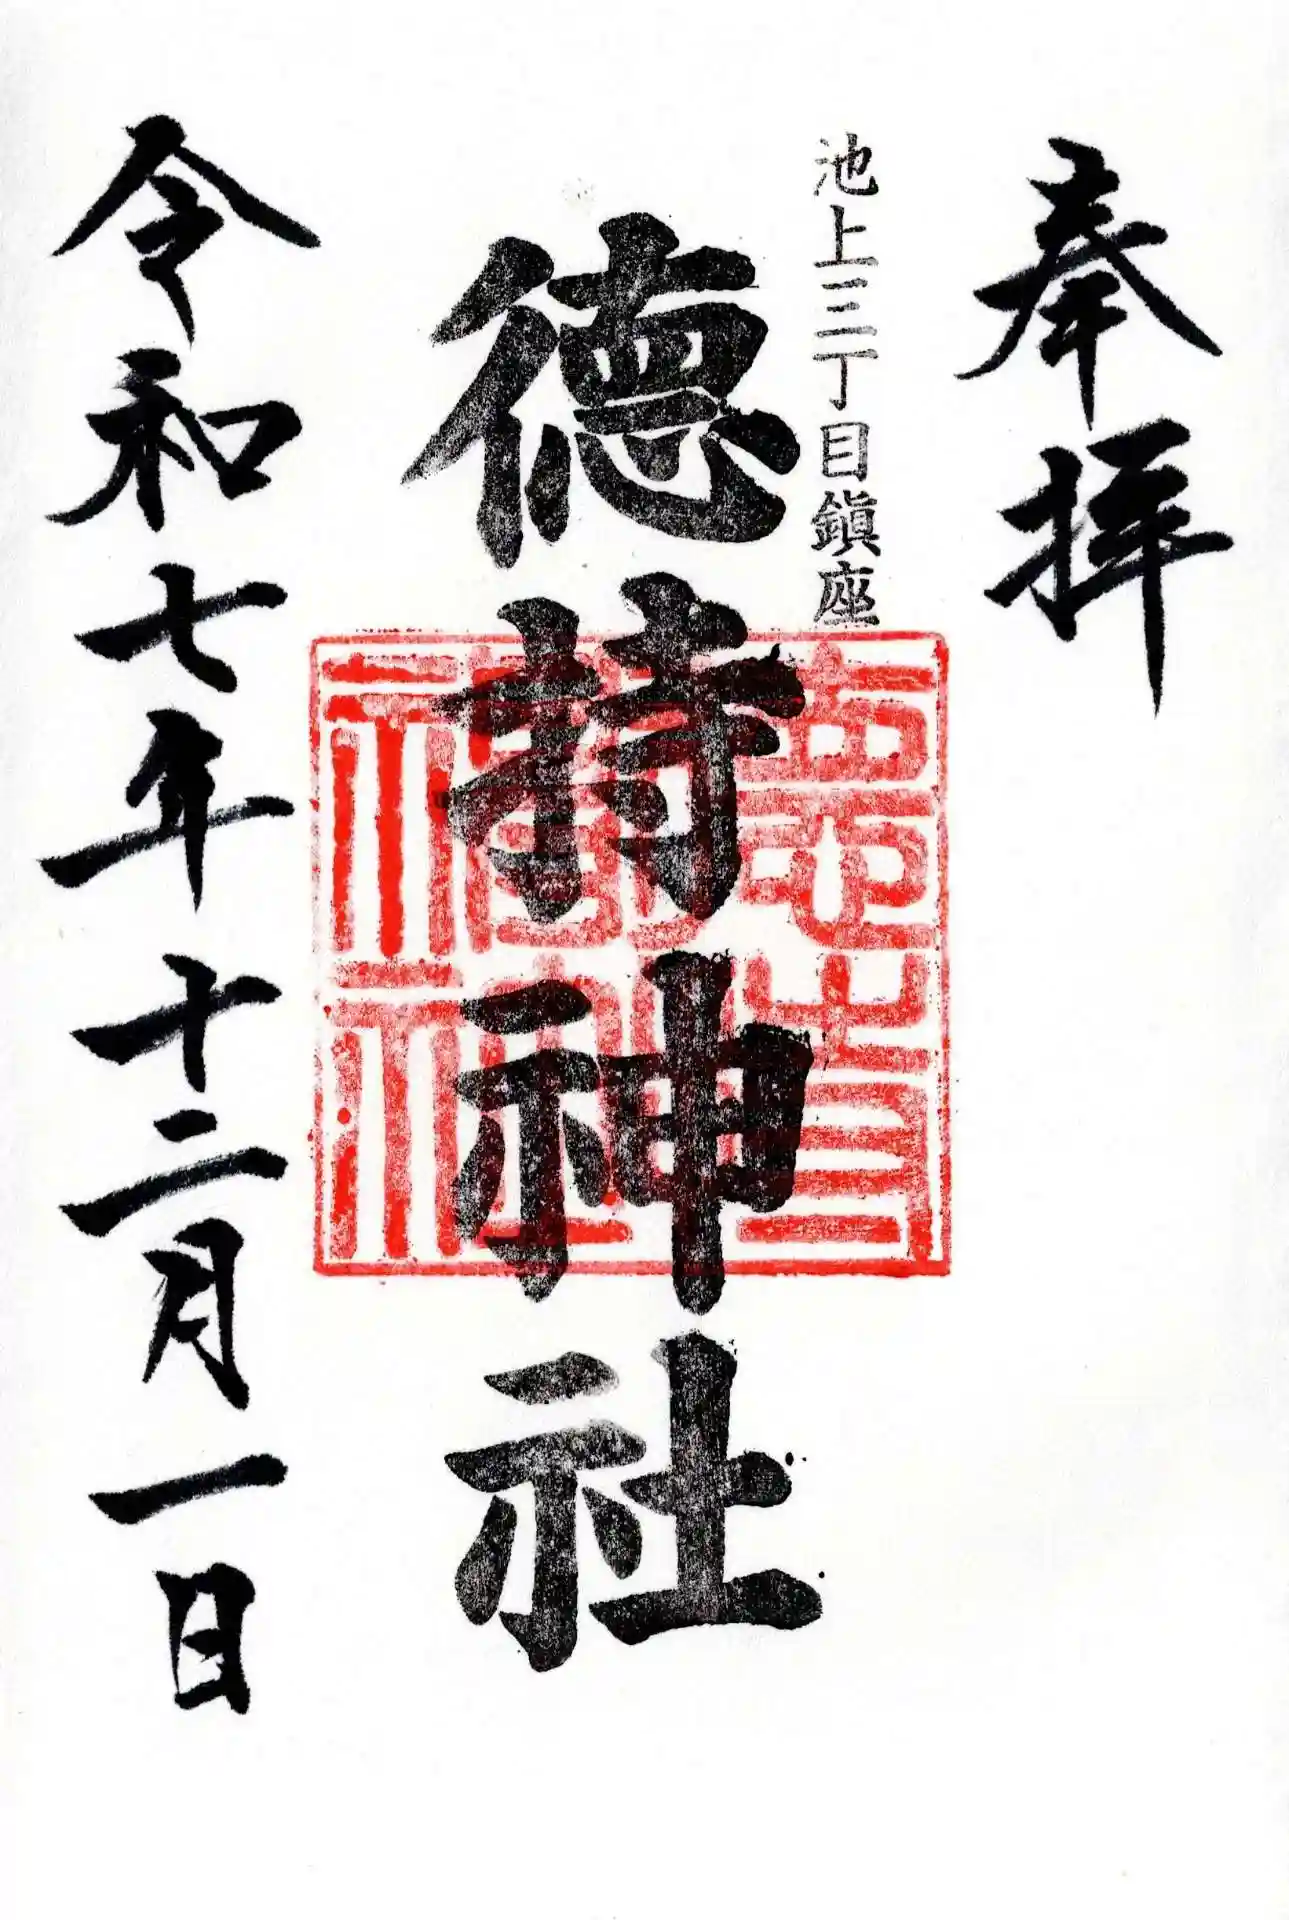 奉拝
池上三丁目鎭座
徳持神社
令和七年十二月一日